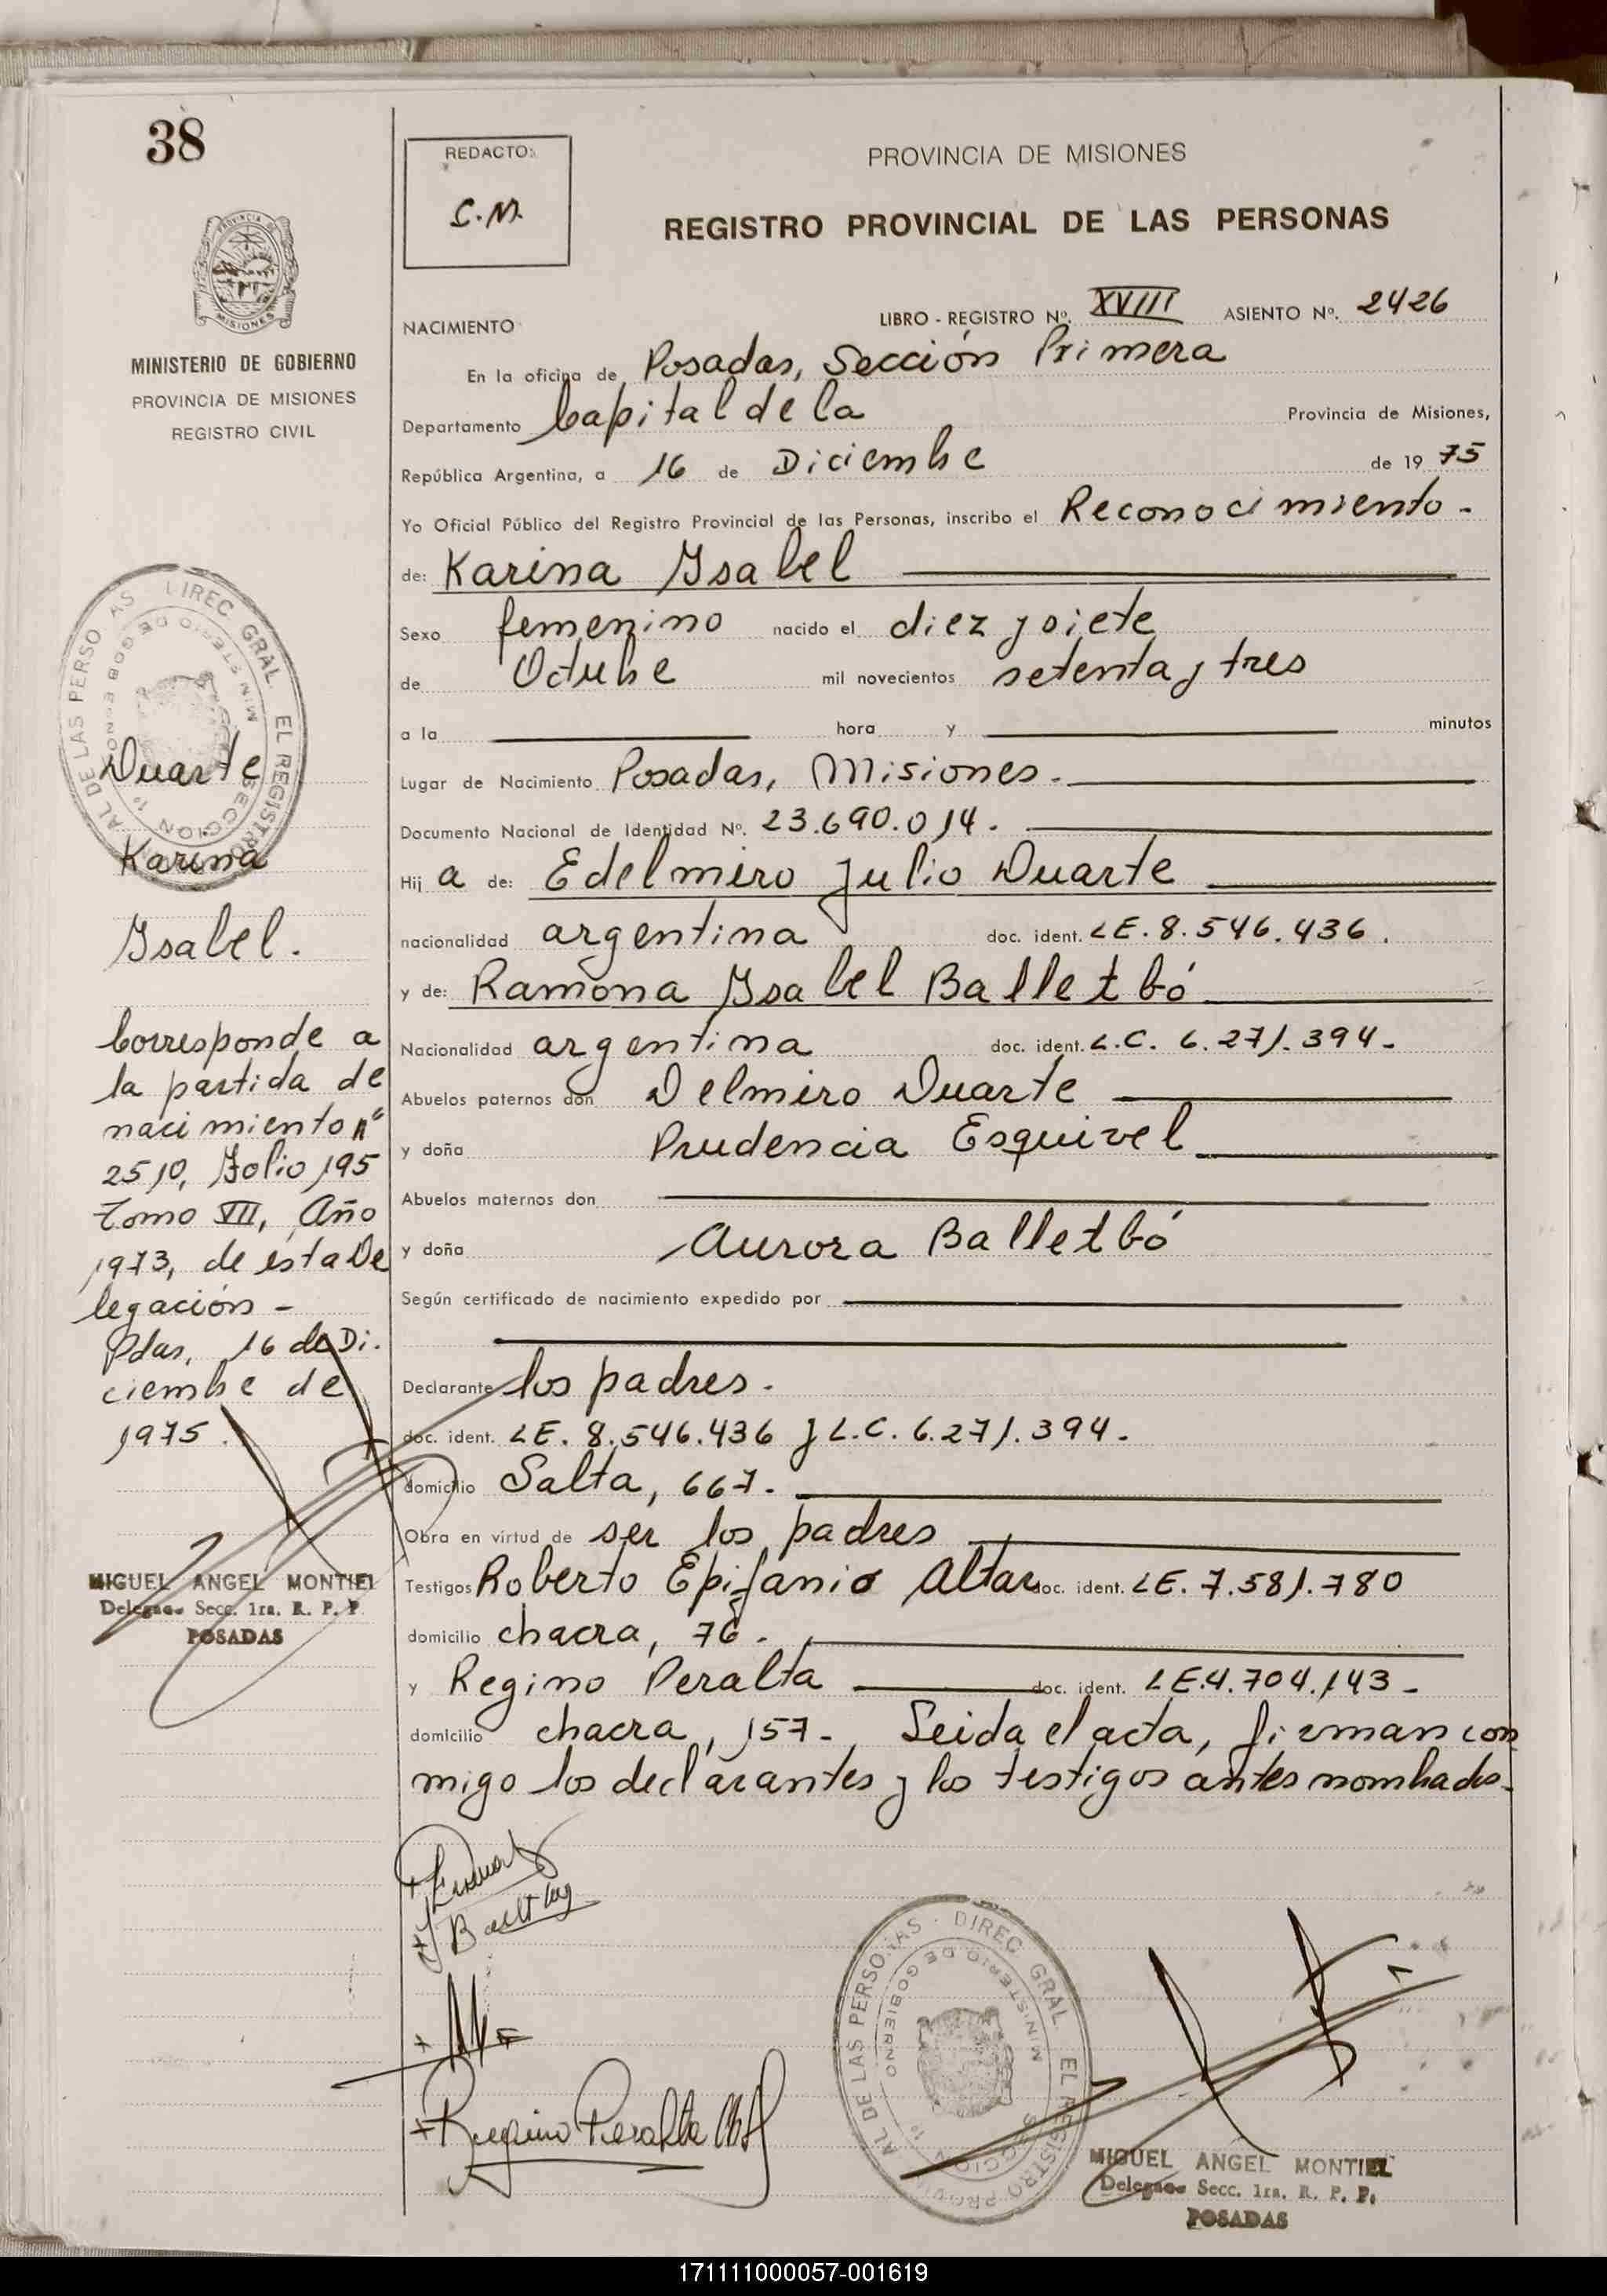 38
MINISTERIO DE GOBIERNO
PROVINCIA DE MISIONES
REGISTRO CIVIL
Duarte
Karina
Ysabel.
Corresponde a
la partida de
nacimiento nº
2510, Folio 195
Tomo VII, Año
1973, de esta De
legación -
Pdas, 16 de Di.
ciembre de
1975.
MIGUEL ANGEL MONTIEL
Delegado Secc. 1ra. R. P. P.
POSADAS
REDACTO:
C.M.
PROVINCIA DE MISIONES
REGISTRO PROVINCIAL DE LAS PERSONAS
NACIMIENTO LIBRO - REGISTRO Nº. XVIII ASIENTO Nº. 2426
En la oficina de Posadas, Sección Primera
Departamento Capital de la Provincia de Misiones,
República Argentina, a 16 de Diciembre de 1975
Yo Oficial Público del Registro Provincial de las Personas, inscribo el Reconocimiento -
de: Karina Ysabel
Sexo femenino nacido el diez y siete
de Octubre mil novecientos setenta y tres
a la hora y minutos
Lugar de Nacimiento Posadas, Misiones.
Documento Nacional de Identidad Nº. 23.690.014.
Hija de: Edelmiro Julio Duarte
nacionalidad argentina doc. ident. LE. 8.546.436.
y de: Ramona Ysabel Balletbó
Nacionalidad argentina doc. ident. L.C. 6.271.394-
Abuelos paternos don Delmiro Duarte
y doña Prudencia Esquivel
Abuelos maternos don
y doña Aurora Balletbó
Según certificado de nacimiento expedido por
Declarante los padres.
doc. ident. LE. 8.546.436 y L.C. 6.271.394-
domicilio Salta, 667.
Obra en virtud de ser los padres
Testigos Roberto Epifanio doc. ident. LE. 7.581.780
domicilio chacra, 76.
y Regino Peralta doc. ident. LE.4.704.143-
domicilio chacra, 157- Leida el acta, firman con
migo los declarantes y los testigos antes nombrados-
Regino Peralta
MIGUEL ANGEL MONTIEL
Delegado Secc. 1ra. R. P. P.
POSADAS
171111000057-001619